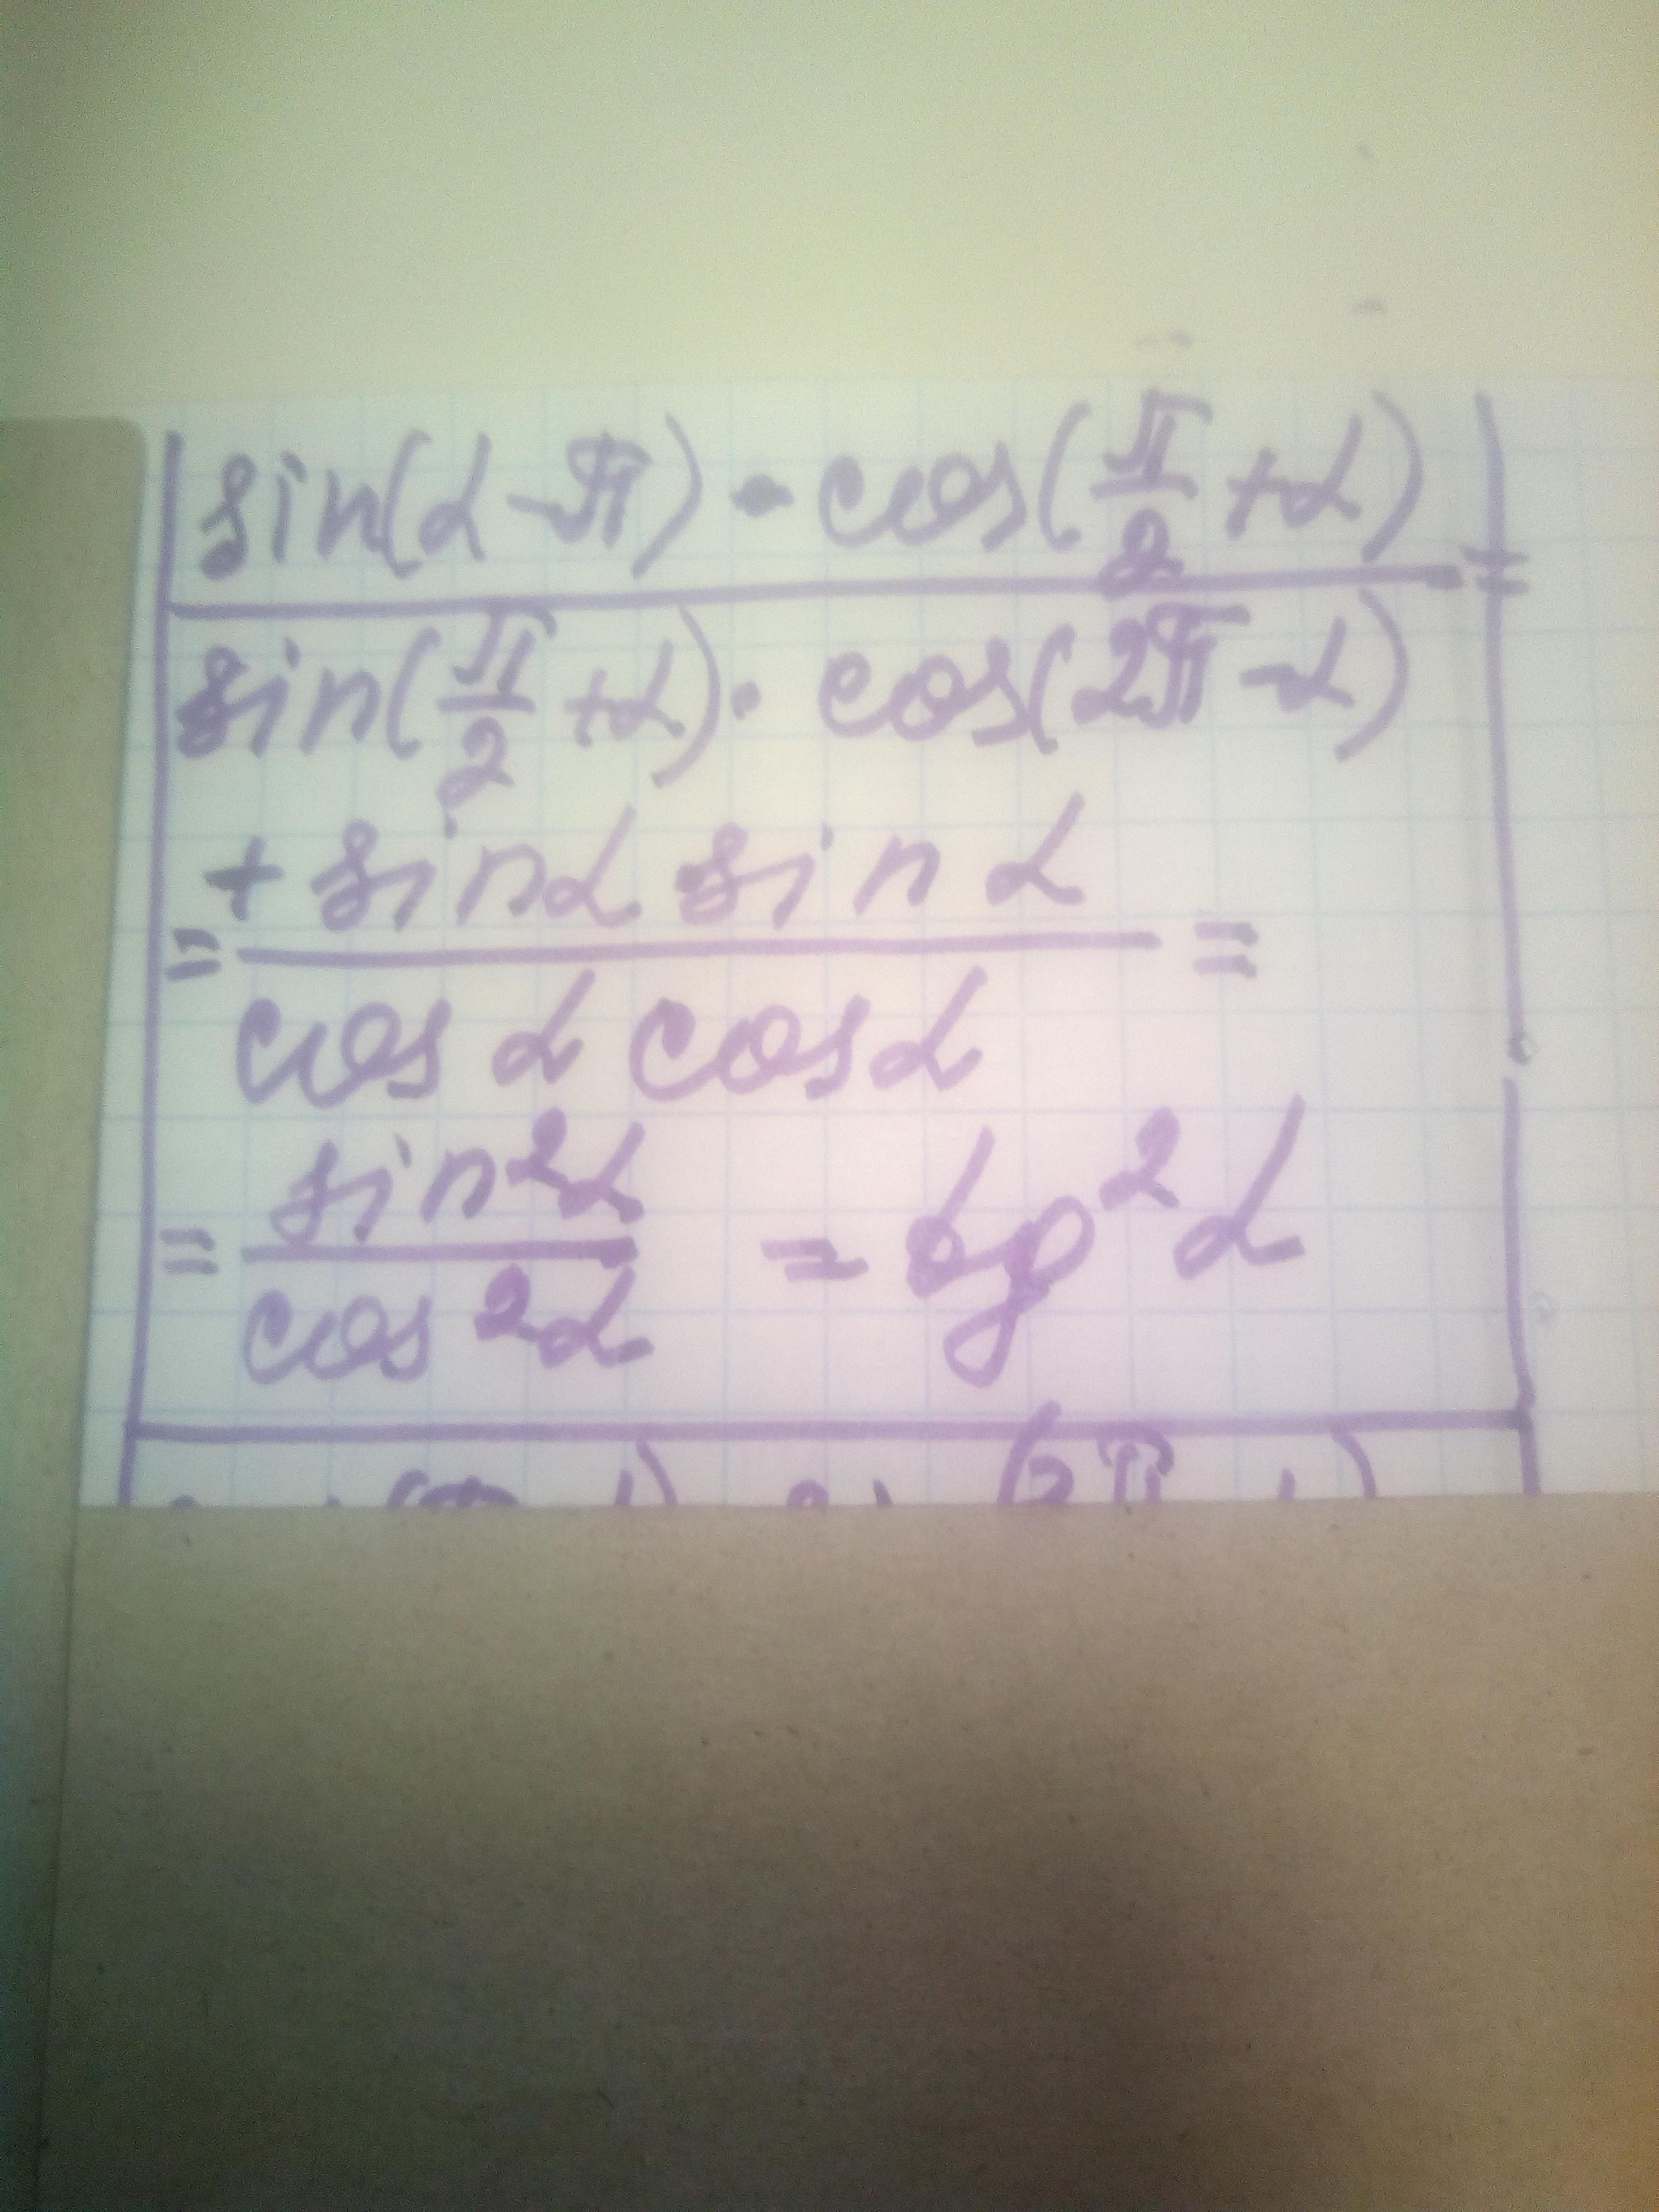 sin(α-π) · cos(π/2 +α) =
sin(π/2 +α) · cos(2π-α)
= + sinα sin α =
cos α cosα
= sin²α = tg²α
cos²α